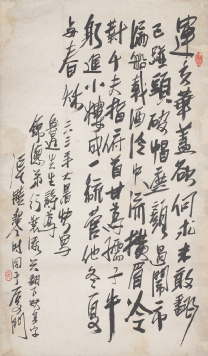 運交華蓋欲何求未敢翻
已碰頭破帽遮顏過鬧市
漏船載酒泛中流橫眉冷
對千夫指俯首甘為孺子牛
躲進小樓成一統管他冬夏
与春秋
六三年大暑
魯迅先生詩
時同于厦門